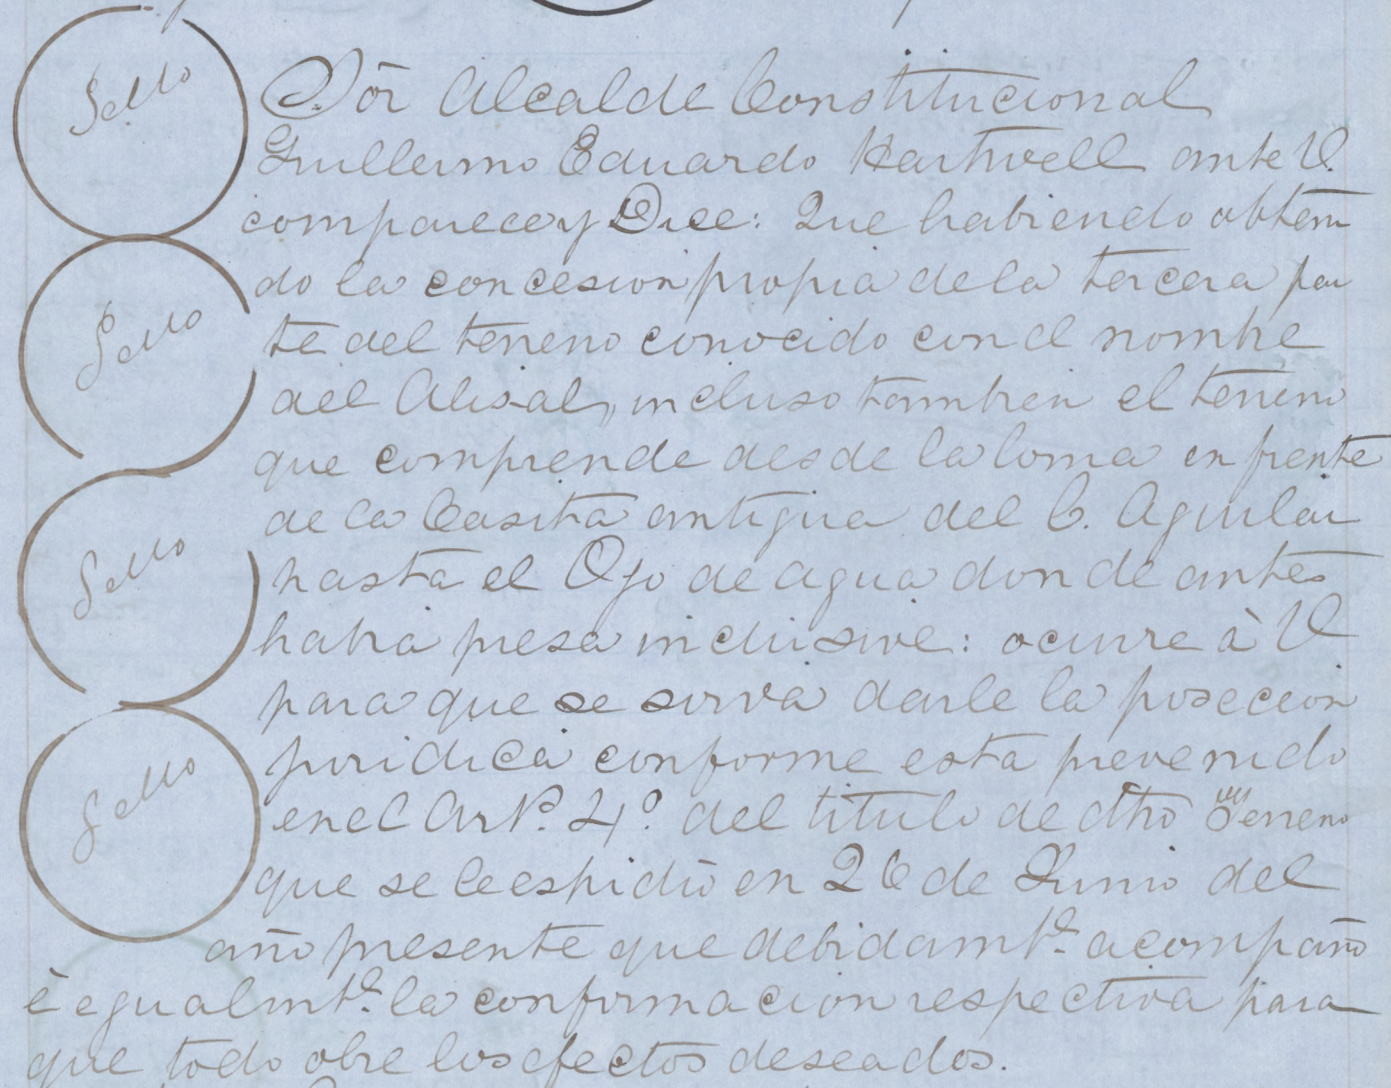 Sello
Sôr Alcalde Constitucional
Guillermo Eduardo Hartwell ante V.
comparece y Dice: Que habiendo obteni
do la concesion propia de la tercera par
Sello
te del terreno conocido con el nombre
del Alisal, incluso tambien el terreno
que comprende desde la loma en frente
de la Casita antigua del C. Aguilar
Sello
hasta el Ojo de agua donde antes
habia presa inclusive: ocurre à V
para que se sirva darle la poseccion
juridica conforme esta prevenido
Sello
en el Art.º 4º. del titulo de dho Terreno
que se le espidió en 26 de Junio del
año presente que debidamte. acompaño
è egualmte. la confirmacion respectiva para
que todo obre los efectos deseados.